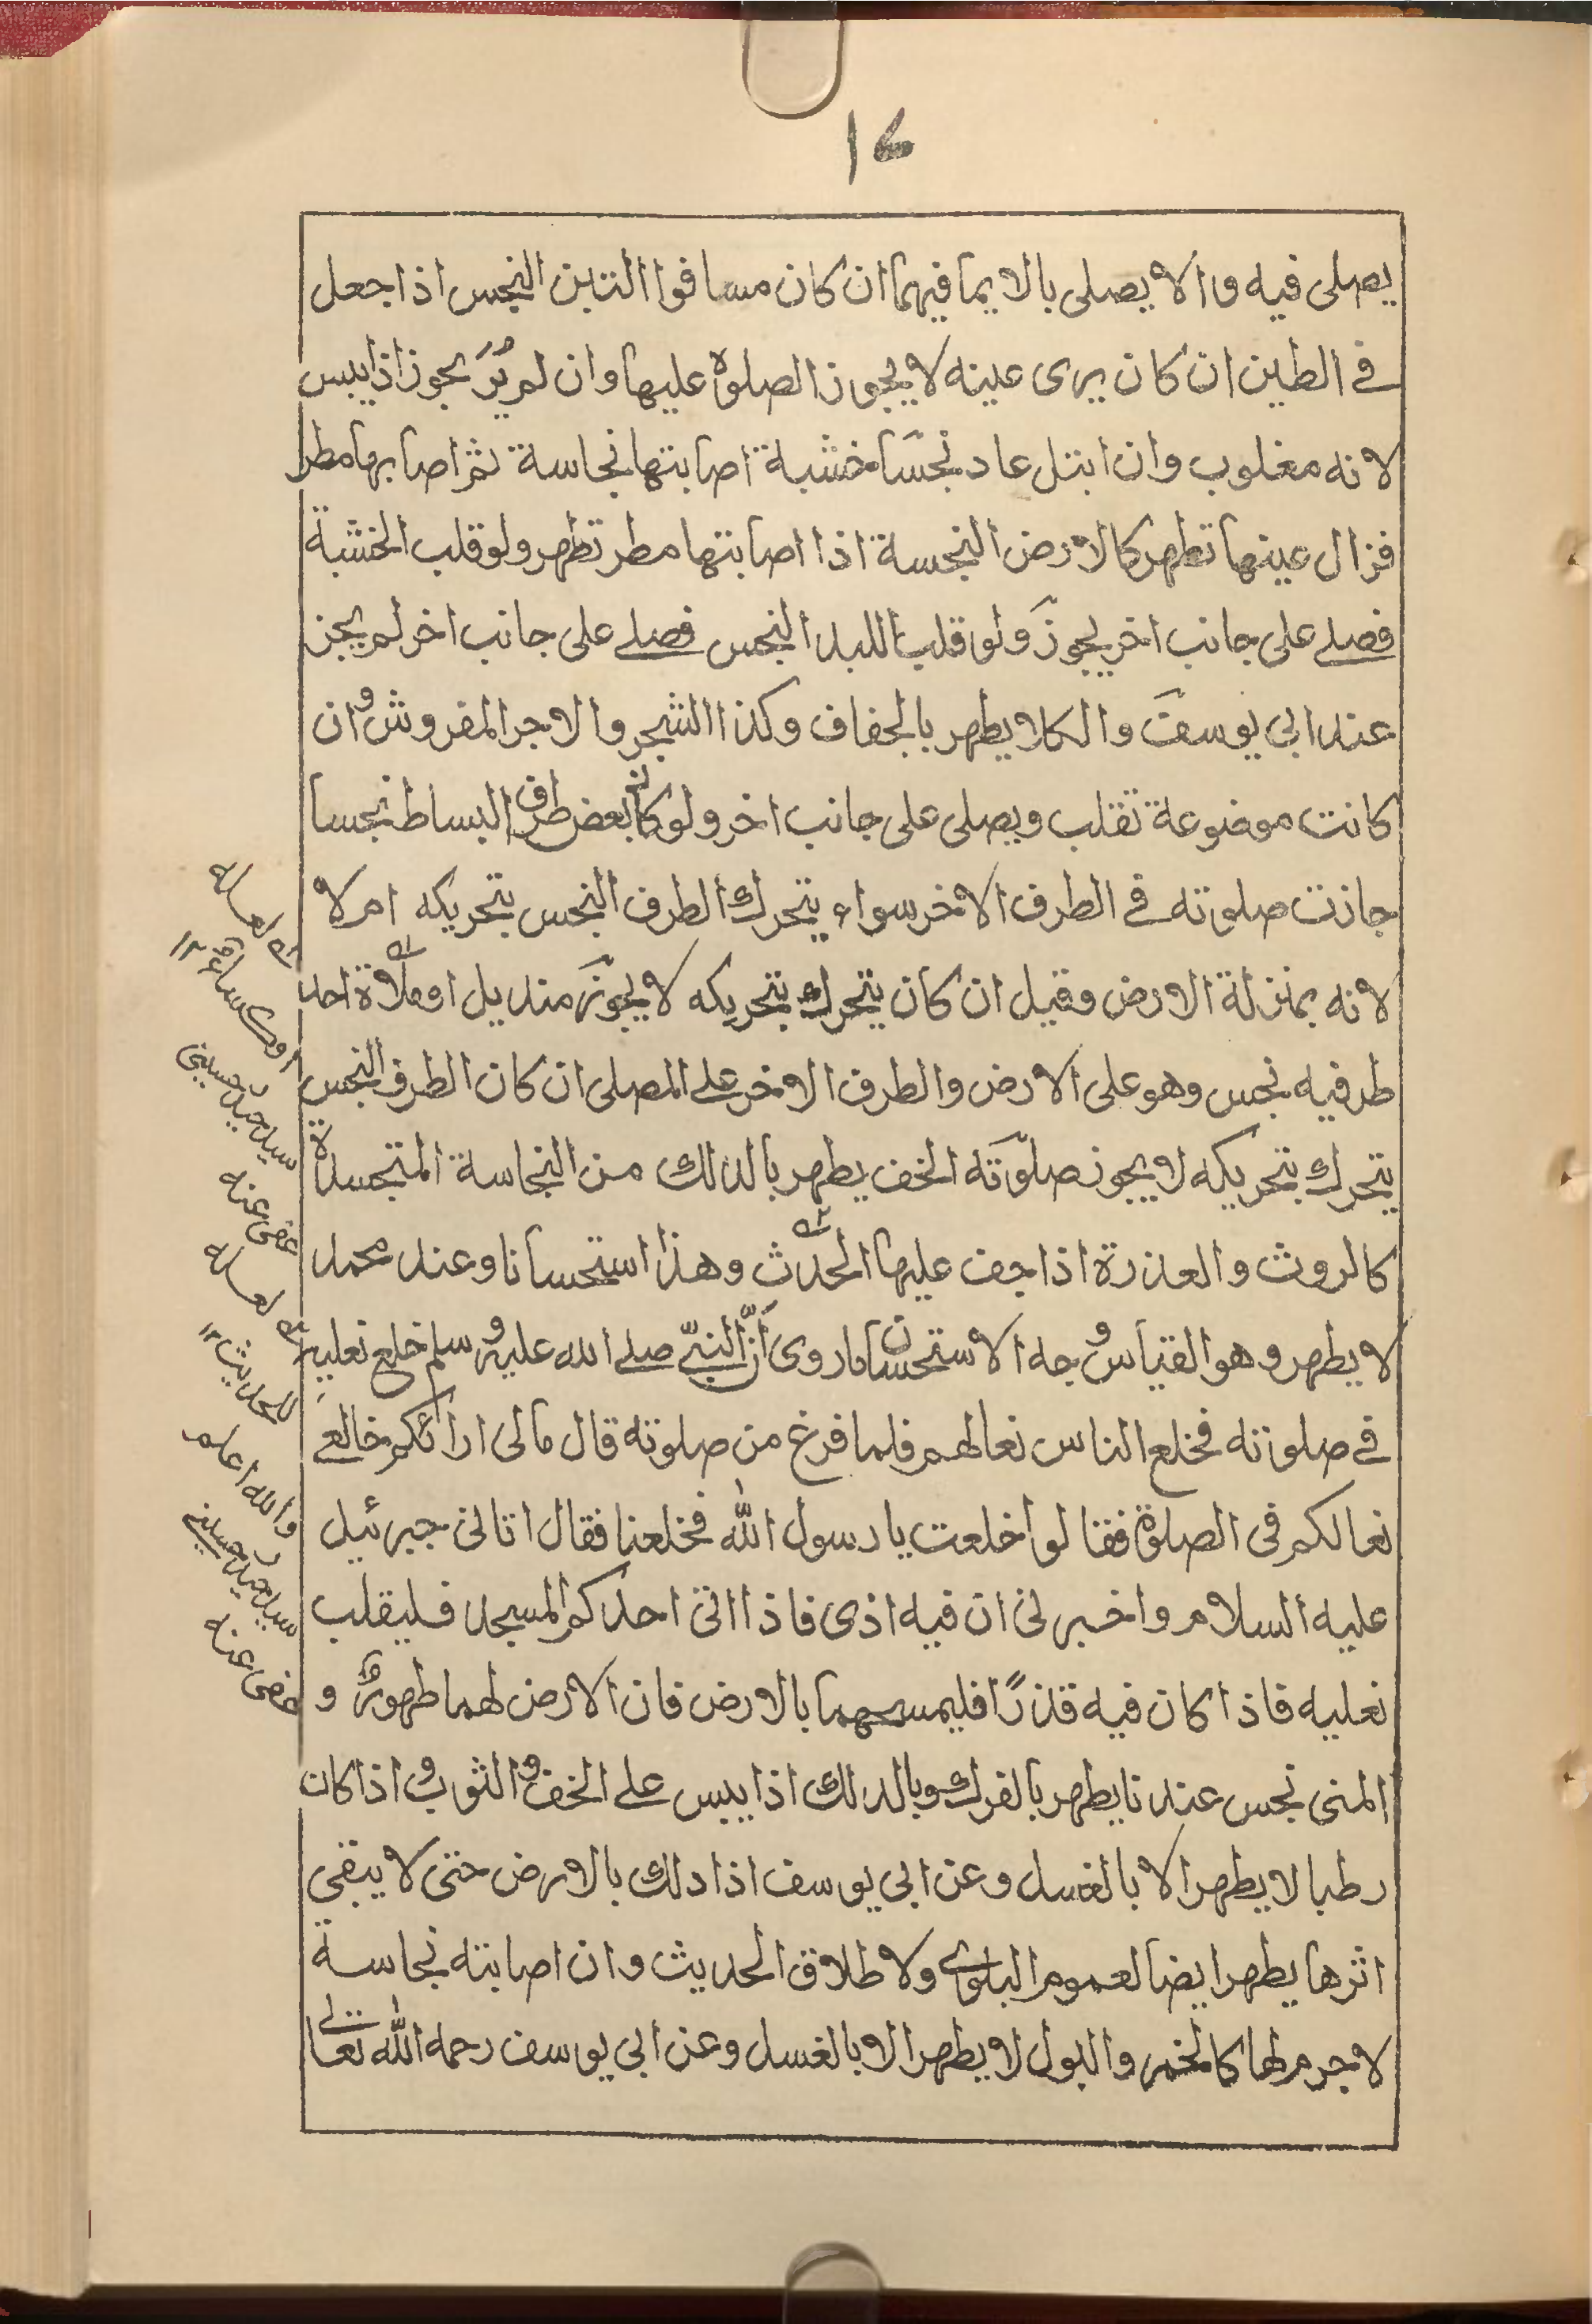 ١٧
يصلى فيه والا يصلى بالايما فيهما ان كان مسافوا التبن النجس اذا جعل
فے الطين ان كان يرى عينه لا يجوز الصلوة عليها وان لم يُرَ يجوز اذا يبس
لانه مغلوب وان ابتل عاد نجسًا خشبة اصابتها نجاسة ثم اصابها مطر
فزال عينها تطهر كالارض النجسة اذا اصابتها مطر تطهر ولو قلب الخشبة
فصلے على جانب اخر يجوز ولو قلب اللبد النجس فصلے على جانب اخر لم يجز
عند ابى يوسف والكلا يطهر بالجفاف وكذا الشجر والاجر المفروش وان
كانت موضوعة تقلب ويصلى على جانب اخر ولو كان بعض طرف البساط نجسا
جازت صلوته فے الطرف الاخر سواء يتحرك الطرف النجس بتحريكه ام لا
لانه بمنزلة الارض وقيل ان كان يتحرك بتحريكه لا يجوز منديل او ملاة احد
طرفيه نجس وهو على الارض والطرف الاخر علے المصلى ان كان الطرف النجس
يتحرك بتحريكه لا يجوز صلوته الخف يطهر بالدلك من النجاسة المتجسدة
كالروث والعذرة اذا جف عليها الحدث وهذا استحسانا وعند محمد
لا يطهر وهو القياس وجه الاستحسان ماروى أنّ النبىّ صلے الله عليه وسلم خلع نعليه
فے صلوته فخلع الناس نعالهم فلما فرغ من صلوته قال مالى ارائكم خالعے
نعالكم فى الصلوة فقالوا خلعت يا رسول الله فخلعنا فقال اتانى جبرئيل
عليه السلام واخبرنى ان فيه اذى فاذا اتى احدكم المسجد فليقلب
نعليه فاذا كان فيه قذرًا فليمسحهما بالارض فان الارض لهما طهورٌ و
المنى نجس عندنا يطهر بالفرك وبالدلك اذا يبس علے الخف والثوب واذا كان
رطبا لا يطهر الا بالغسل وعن ابى يوسف اذا دلك بالارض حتى لا يبقى
اثرها يطهر ايضا لعموم البلوے ولاطلاق الحديث وان اصابته نجاسة
لا جرم لها كالخمر والبول لا يطهر الا بالغسل وعن ابى يوسف رحمه الله تعالے
لعله
اوكساء ١٢
سيد حيدر حسينى
عفى عنه
لعله
للحديث ١٢
والله اعلم
سيد حيدر حسينى
عفى عنه